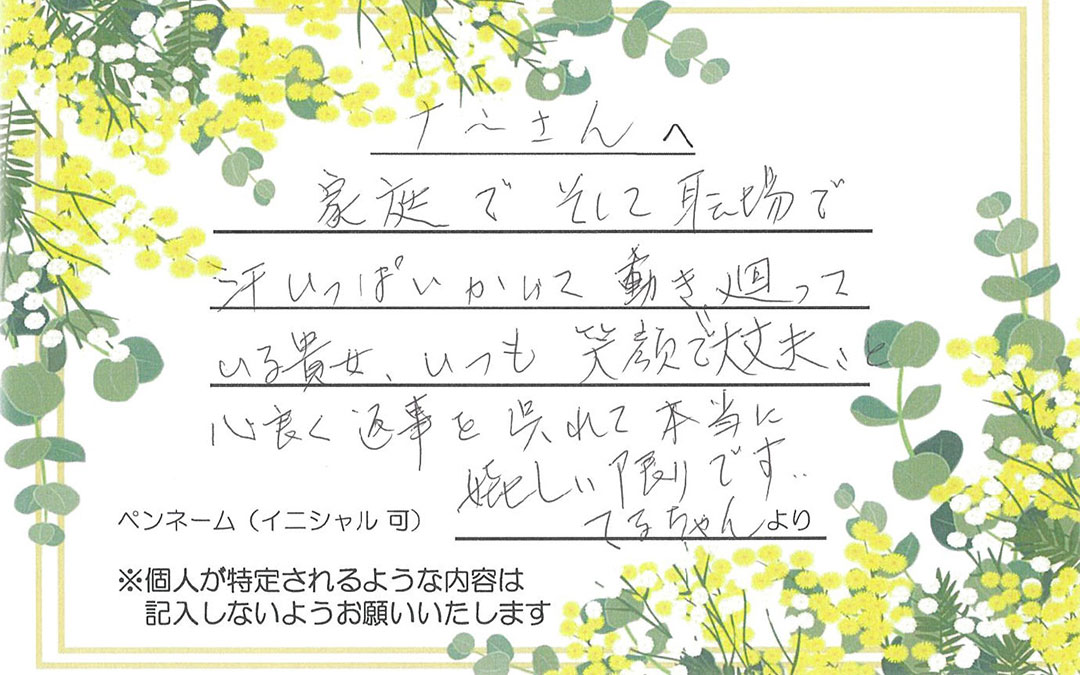 ナーさんへ
家庭でそして職場で
汗いっぱいかいて動き廻って
いる貴女、いつも笑顔で大丈夫よと
心良く返事を呉れて本当に
嬉しい限りです‥
ペンネーム(イニシャル 可)
てるちゃんより
※個人が特定されるような内容は
記入しないようお願いいたします